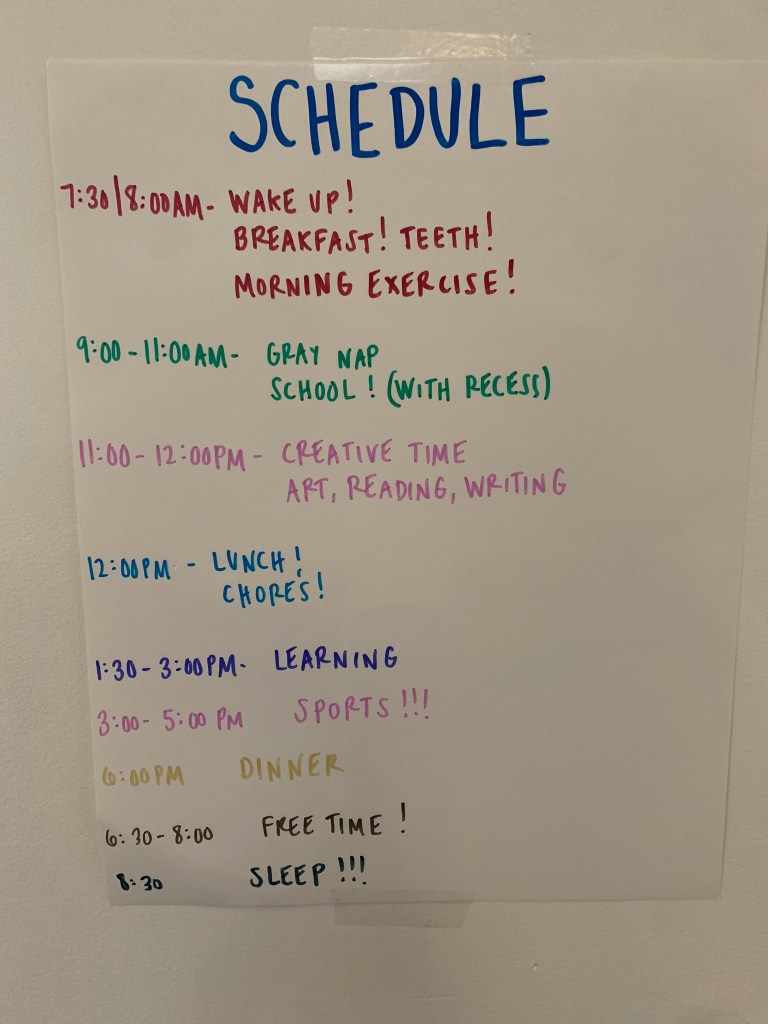 SCHEDULE
7:30/8:00AM- WAKE UP!
BREAKFAST! TEETH!
MORNING EXERCISE!
9:00-11:00AM- GRAY NAP
SCHOOL! (WITH RECESS)
11:00-12:00PM- CREATIVE TIME
ART, READING, WRITING
12:00PM - LUNCH!
CHORES!
1:30-3:00PM- LEARNING
3:00-5:00 PM SPORTS!!!
6:00PM DINNER
6:30-8:00 FREE TIME!
8:30 SLEEP!!!